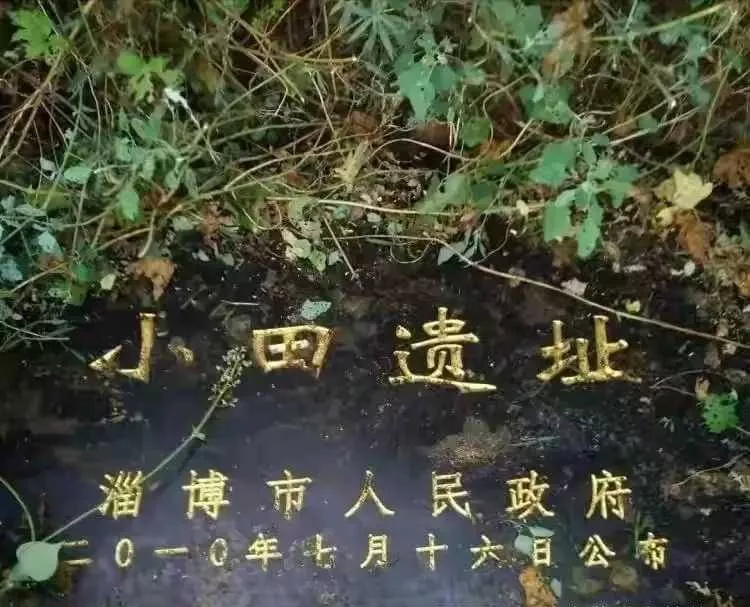 小田遗址
淄博市人民政府
二〇一〇年七月十六日公布